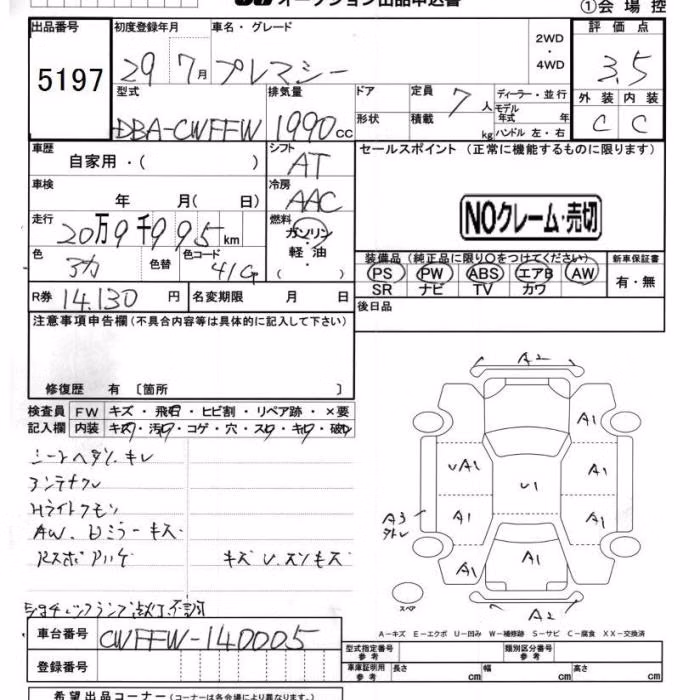 オークション出品申込書
①会場控
出品番号
5197
初度登録年月
29 7月
車名・グレード
プレマシー
2WD
・
4WD
評価点
3.5
外装 内装
C C
型式
DBA-CWFFW
排気量
1990cc
ドア
形状
定員 7人
積載 kg
ディーラー・並行
モデル年式 年
ハンドル 左・右
車歴
自家用・( )
シフト
AT
セールスポイント (正常に機能するものに限ります)
NOクレーム・売切
車検
年 月( 日)
冷房
AAC
走行
20万9千995km
燃料
ガソリン
軽・油
( )
色
アカ
色替
色コード
41G
装備品 (純正品に限り○をつけてください)
PS PW ABS エアB AW
SR ナビ TV カワ
新車保証書
有・無
R券 14.130円
名変期限 月 日
後日品
注意事項申告欄 (不具合内容等は具体的に記入して下さい)
修復歴 有 〔箇所 〕
検査員記入欄
FW キズ・飛石・ヒビ割・リペア跡・×要
内装 キズ・汚レ・コゲ・穴・スレ・キレ・破レ
シートヘタリ、キレ
アンテナクレ
Hライトクモリ
AW、Dミラーキズ
Rスポハゲ
キズ U
点灯不調
A2
A1
UA1
A1
U1
A1
A3
A1
A1
A1
A1
スペア
A2
A-キズ E-エクボ U-凹み W-補修跡 S-サビ C-腐食 XX-交換済
車台番号
CWFFW-140005
登録番号
型式指定番号 参考
類別区分番号 参考
車庫証明用 参考
長さ cm
幅 cm
高さ cm
希望出品コーナー(コーナーは各会場により異なります。)